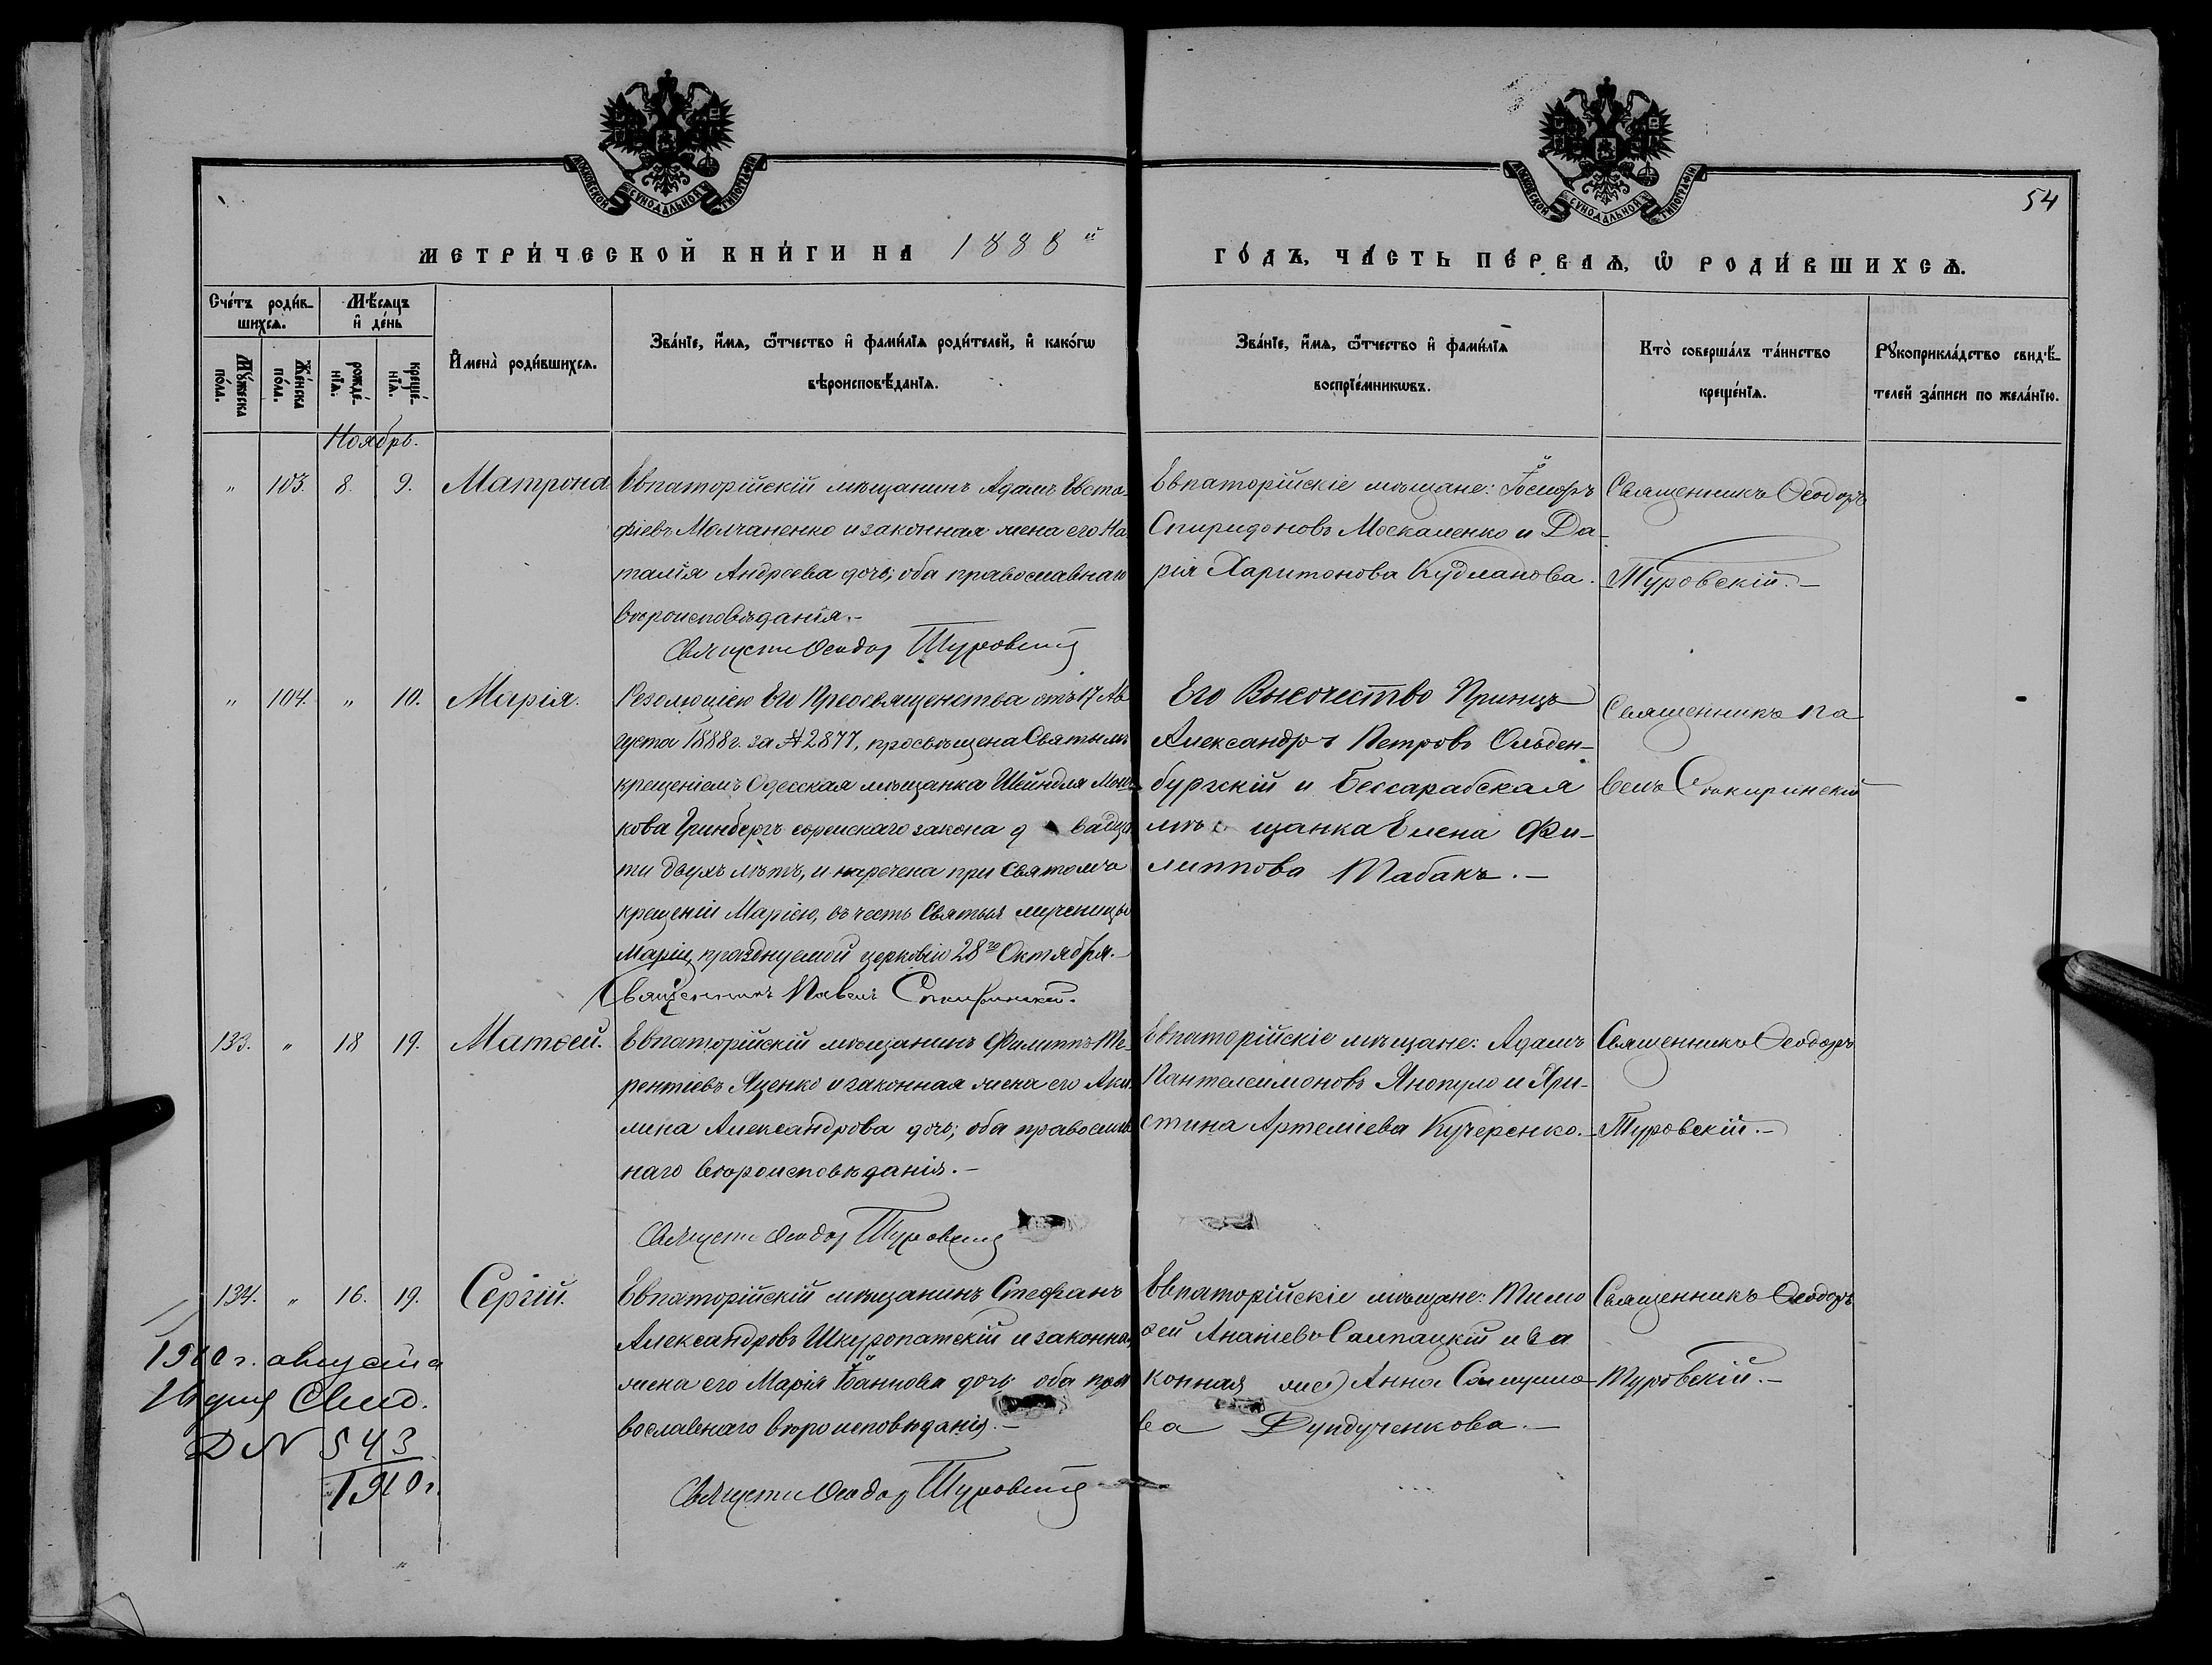 МОСКОВСКОЙ СУНОДАЛЬНОЙ ТИПОГРАФІИ
МОСКОВСКОЙ СУНОДАЛЬНОЙ ТИПОГРАФІИ
54
МЕТРИ́ЧЕСКОЙ КНИ́ГИ НА 1888 й
ГО́ДЪ, ЧА́СТЬ ПЕ́РВАѦ, Ѡ РОДИ́ВШИХСѦ.
Сче́тъ роди́в-
шихсѧ.
Мѣ́сѧцъ
и де́нь
Мꙋ́жеска
по́ла.
Же́нска
по́ла.
рожде́-
нїѧ.
креще́-
нїѧ.
Имена̀ роди́вшихсѧ.
Зва́нїе, и́мѧ, ѻ́тчество и фами́лїѧ роди́телей, и како́гѡ
вѣроисповѣ́данїѧ.
Зва́нїе, и́мѧ, ѻ́тчество и фами́лїѧ
воспрїе́мникѡвъ.
Кто̀ соверша́лъ та́инство
креще́нїѧ.
Рꙋкоприкла́дство свидѣ́-
телей за́писи по жела́нїю.
Ноябрь.
" 103. 8. 9. Матрона.
Евпаторійскій мѣщанинъ Адамъ Евста-
фіевъ Молчаненко и законная жена его На-
талія Андреева дочь; оба православнаго
вѣроисповѣданія.-
Священ Ѳеодор Туровскій
Евпаторійскіе мѣщане: Іосифъ
Спиридоновъ Москаленко и Да-
рія Харитонова Кудланова.
Священникъ Ѳеодоръ
Туровскій.-
" 104. " 10. Марія.
Резолюціею Его Преосвященства отъ 17 Ав-
густа 1888 г. за № 2877, просвѣщена Святымъ
крещеніемъ Одесская мѣщанка Шейндля Мош-
кова Гринбергъ еврейскаго закона двадца-
ти двухъ лѣтъ, и наречена при Святомъ
крещеніи Маріею, въ честь Святыя мученицы
Маріи, празднуемой церковію 28го Октября.-
Священникъ Павелъ Сокиринскій.
Его Высочество Принцъ
Александръ Петровъ Ольден-
бургскій и Бессарабская
мѣщанка Елена Фи-
липпова Табакъ.-
Священникъ Па-
велъ Сокиринскій
133. " 18 19. Матѳей.
Евпаторійскій мѣщанинъ Филиппъ Те-
рентіевъ Яценко и законная жена его Аки-
лина Александрова дочь; оба православ-
наго вѣроисповѣданія.-
Священ Ѳеодор Туровскій
Евпаторійскіе мѣщане: Адамъ
Пантелеимоновъ Янопуло и Хри-
стина Артеміева Кучеренко.-
Священникъ Ѳеодоръ
Туровскій.-
134. " 16. 19. Сергій.
Евпаторійскій мѣщанинъ Стефанъ
Александровъ Шкуропатскій и законная
жена его Марія Іоаннова дочь оба пра-
вославнаго вѣроисповѣданія.-
Священ Ѳеодор Туровскій
Евпаторійскіе мѣщане: Тимо-
ѳей Ананіевъ Сампацкій и за
конная жена Анна Самуило-
ва Дундученкова.-
Священникъ Ѳеодоръ
Туровскій.-
1910 г. августа
выдан Свид.
№ 543
1910 г.